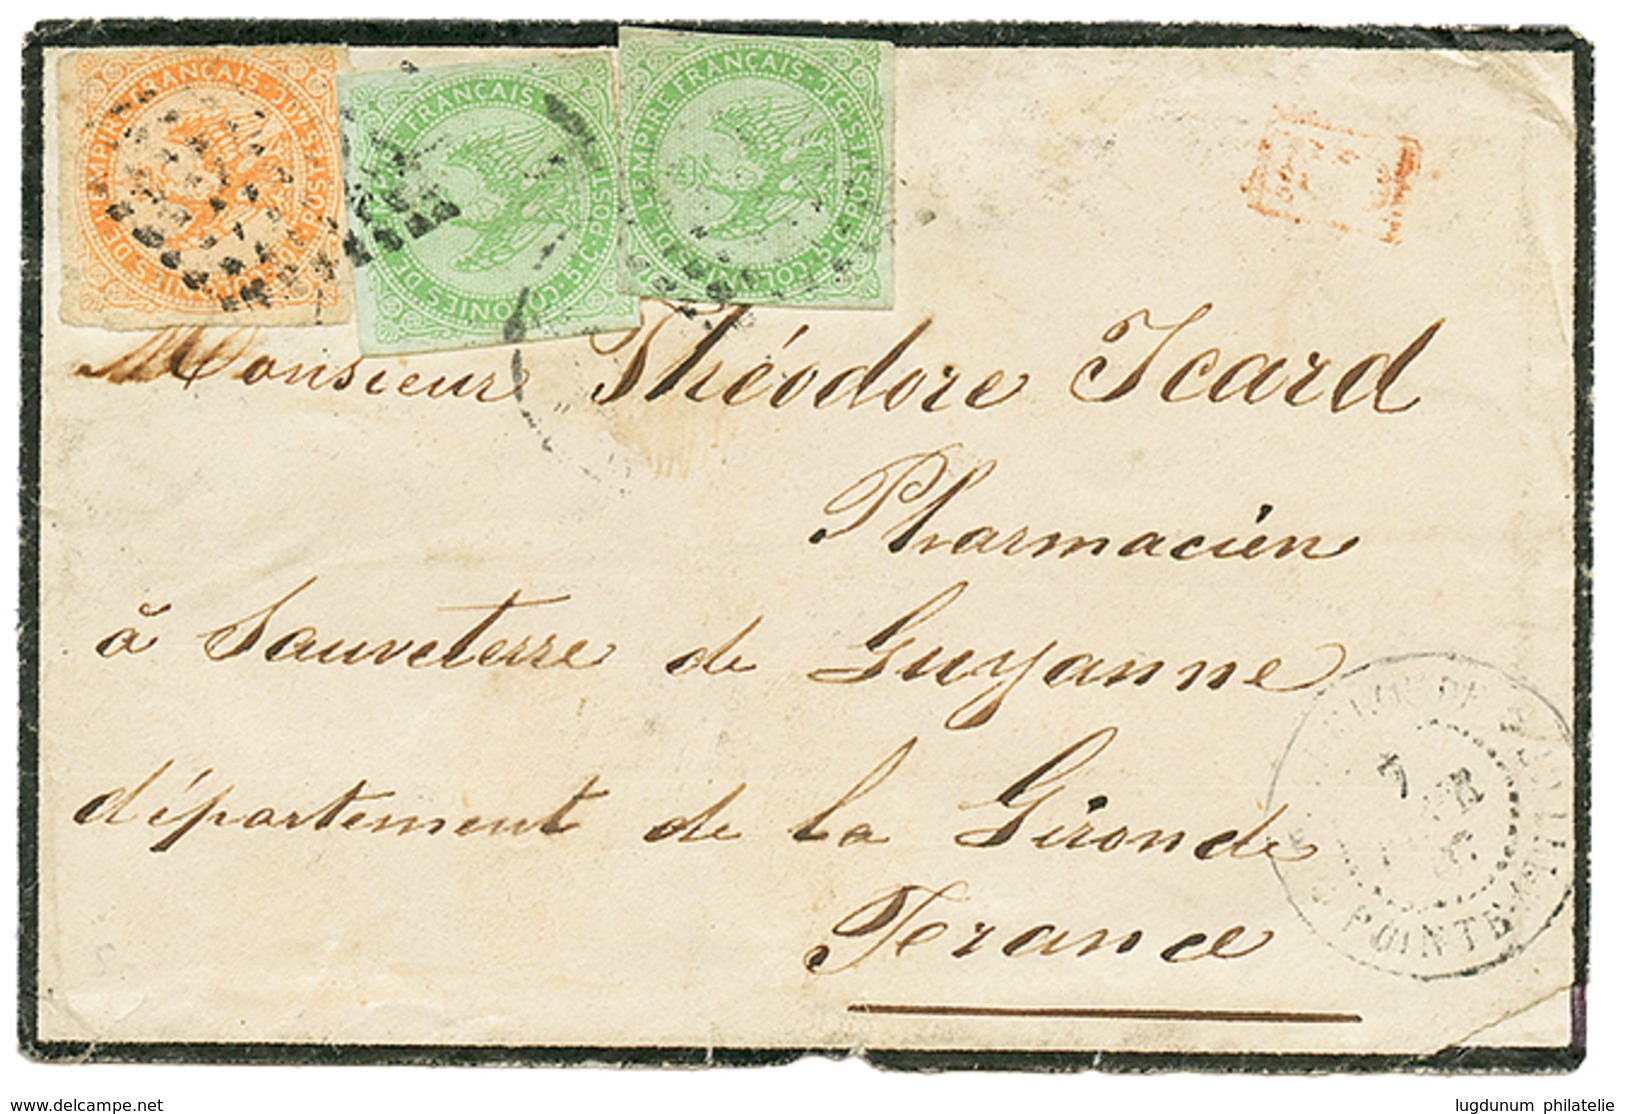 COLONIES DE L'EMPIRE FRANÇAIS · POSTES · 40 C.
COLONIES DE L'EMPIRE FRANÇAIS · POSTES · 5 C.
COLONIES DE L'EMPIRE FRANÇAIS · POSTES · 5 C.
Monsieur Théodore Icard
Pharmacien
à Sauveterre de Guyanne
département de la Gironde
France
7
POINTE
www.delcampe.net
lugdunum philatelie